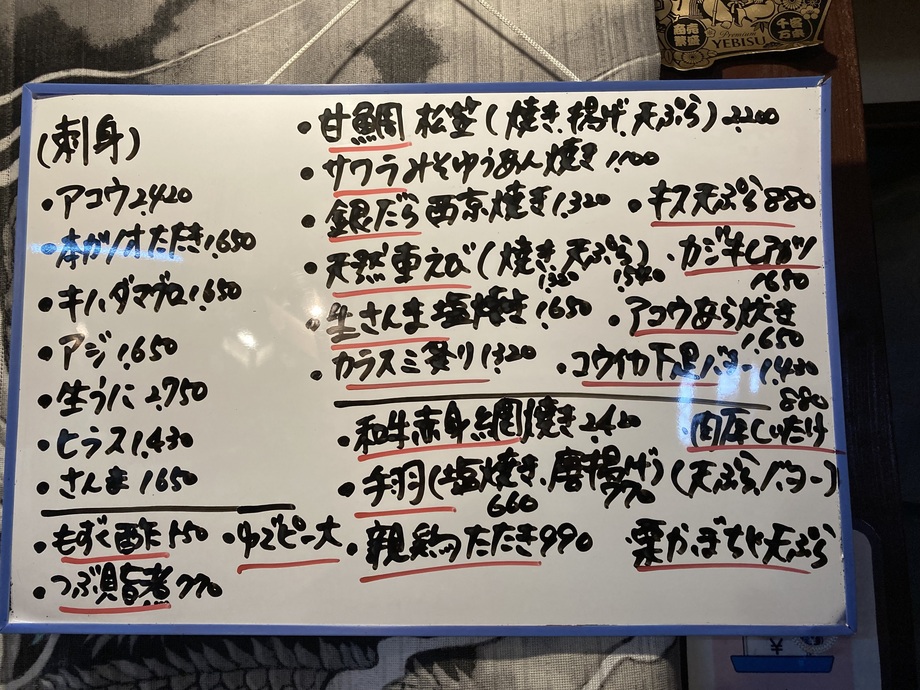 (刺身)
・アコウ2,420
・本ガツオたたき1,650
・キハダマグロ1,650
・アジ1,650
・生うに2,750
・ヒラス1,430
・さんま1650
・もずく酢550
・ゆでピー大
・つぶ貝旨煮770
・甘鯛 松笠(焼き、揚げ、天ぷら)2,200
・サワラみそゆうあん焼き1,100
・銀だら西京焼き1,320
・キス天ぷら880
・天然車えび(焼き、天ぷら)
1320 1,540
・カジキレアカツ
1650
・生さんま塩焼き1,650
・アコウあら炊き
1,650
・カラスミ炙り1320
・コウイカ下足バター1,430
・和牛赤身網焼き2,420
880
・肉厚しいたけ
(天ぷら、バター)
・手羽(塩焼き、唐揚げ)
660 770
・親鶏のたたき990
・栗かぼちゃ天ぷら
Premium
YEBISU
¥